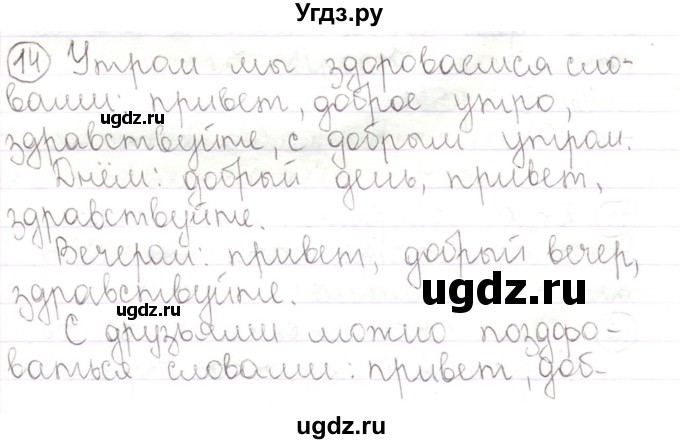 Угдз.ру
14 Утром мы здороваемся сло-
вами: привет, доброе утро,
ugdz.ru
здравствуйте, с добрым утром.
Днём: добрый день, привет,
здравствуйте.
ugdz.ru
Вечером: привет, добрый вечер,
здравствуйте.
ugdz.ru
ugdz.ru
С друзьями можно поздоро-
ваться словами: привет, доб-
ugdz.ru